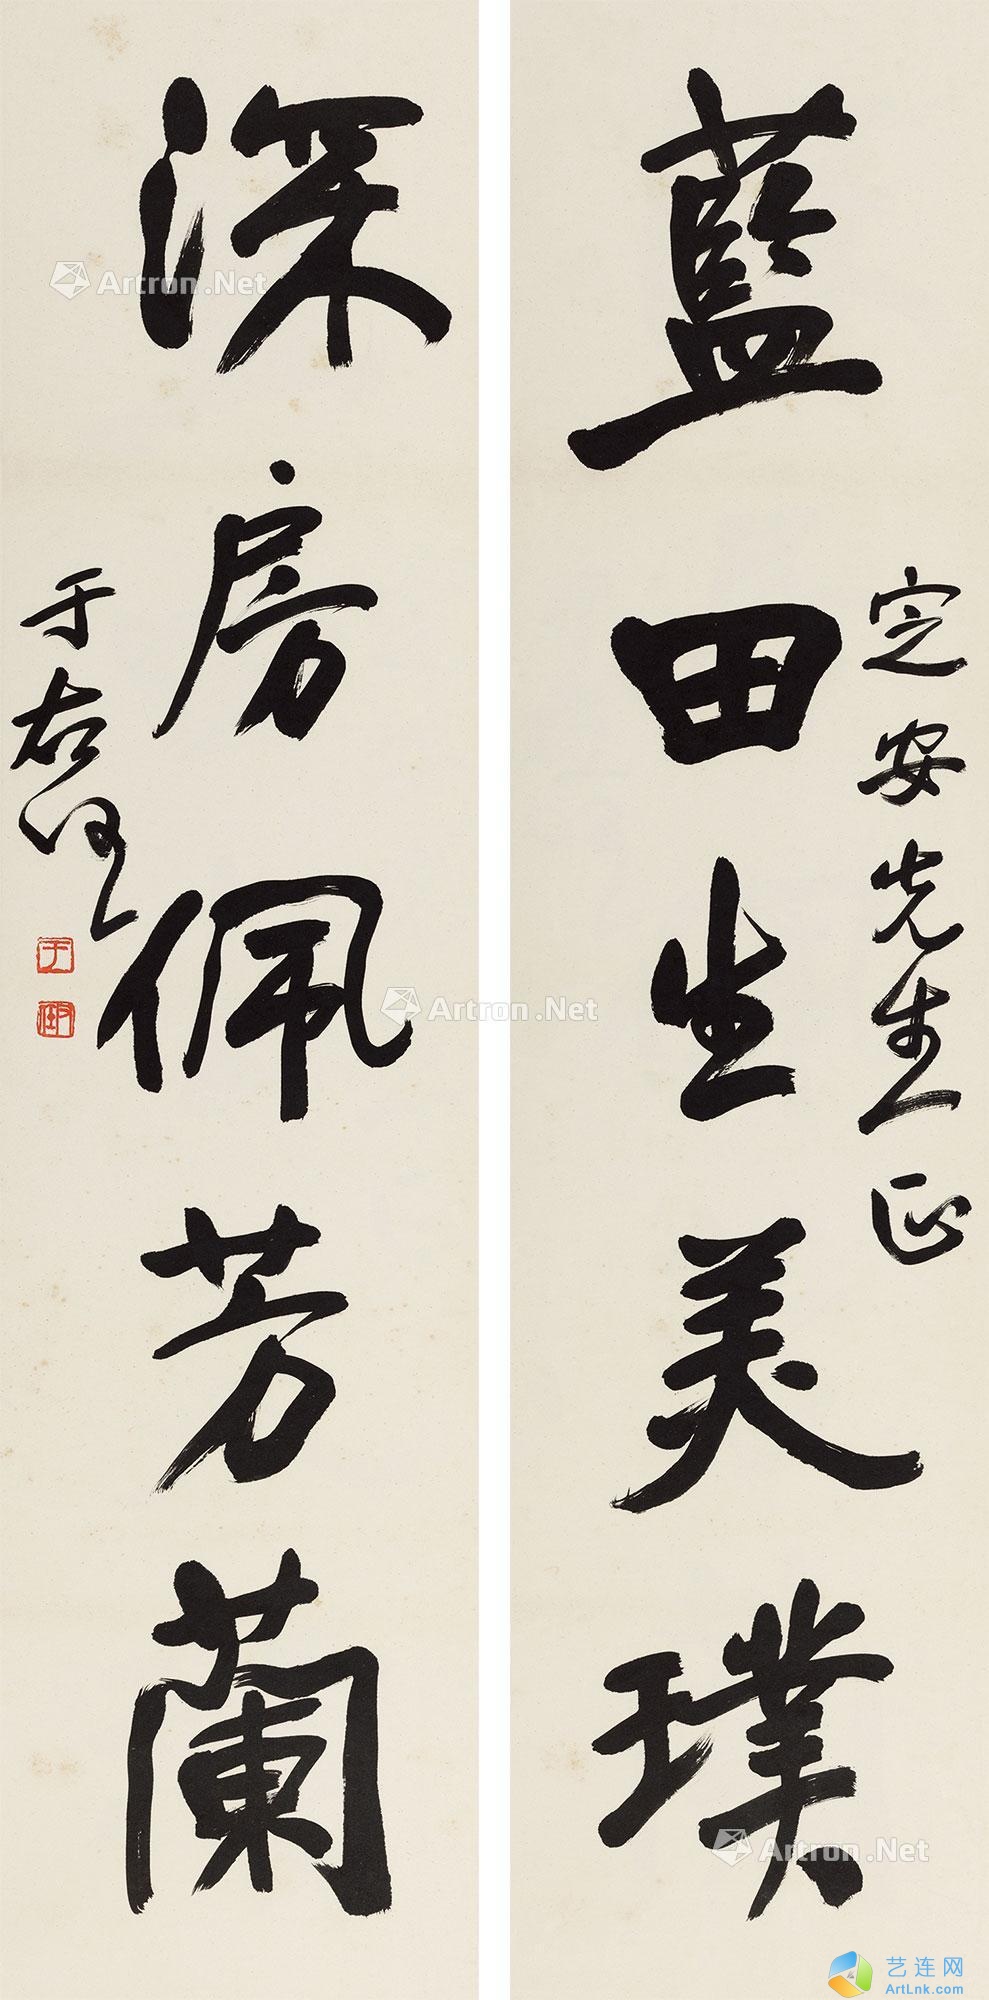 藍田生美璞
定安先生正
深房佩芳蘭
于右任
Artron.Net
Artron.Net
Artron.Net
艺连网
ArtLnk.com